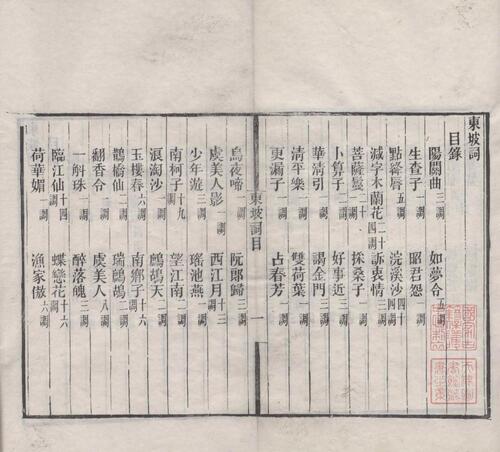 東坡詞
目錄
陽關曲三調 如夢令五調
生查子一調 昭君怨一調
點絳唇五調 浣溪沙四十四調
減字木蘭花二十四調 訴衷情三調
菩薩蠻二十調 採桑子一調
卜算子二調 好事近三調
華清引一調 謁金門三調
清平樂一調 雙荷葉一調
更漏子一調 占春芳一調
東坡詞目 一
烏夜啼一調 阮郎歸三調
虞美人影一調 西江月十三調
少年遊三調 瑤池燕一調
南柯子十九調 望江南二調
浪淘沙一調 鷓鴣天二調
玉樓春六調 南鄉子十六調
鵲橋仙二調 瑞鷓鴣二調
翻香令一調 虞美人八調
一斛珠一調 醉落魄四調
臨江仙十四調 蝶戀花十六調
荷華媚一調 漁家傲六調